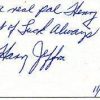 a real pal Henry
t of Luck Always
Harry Jeffra
11/